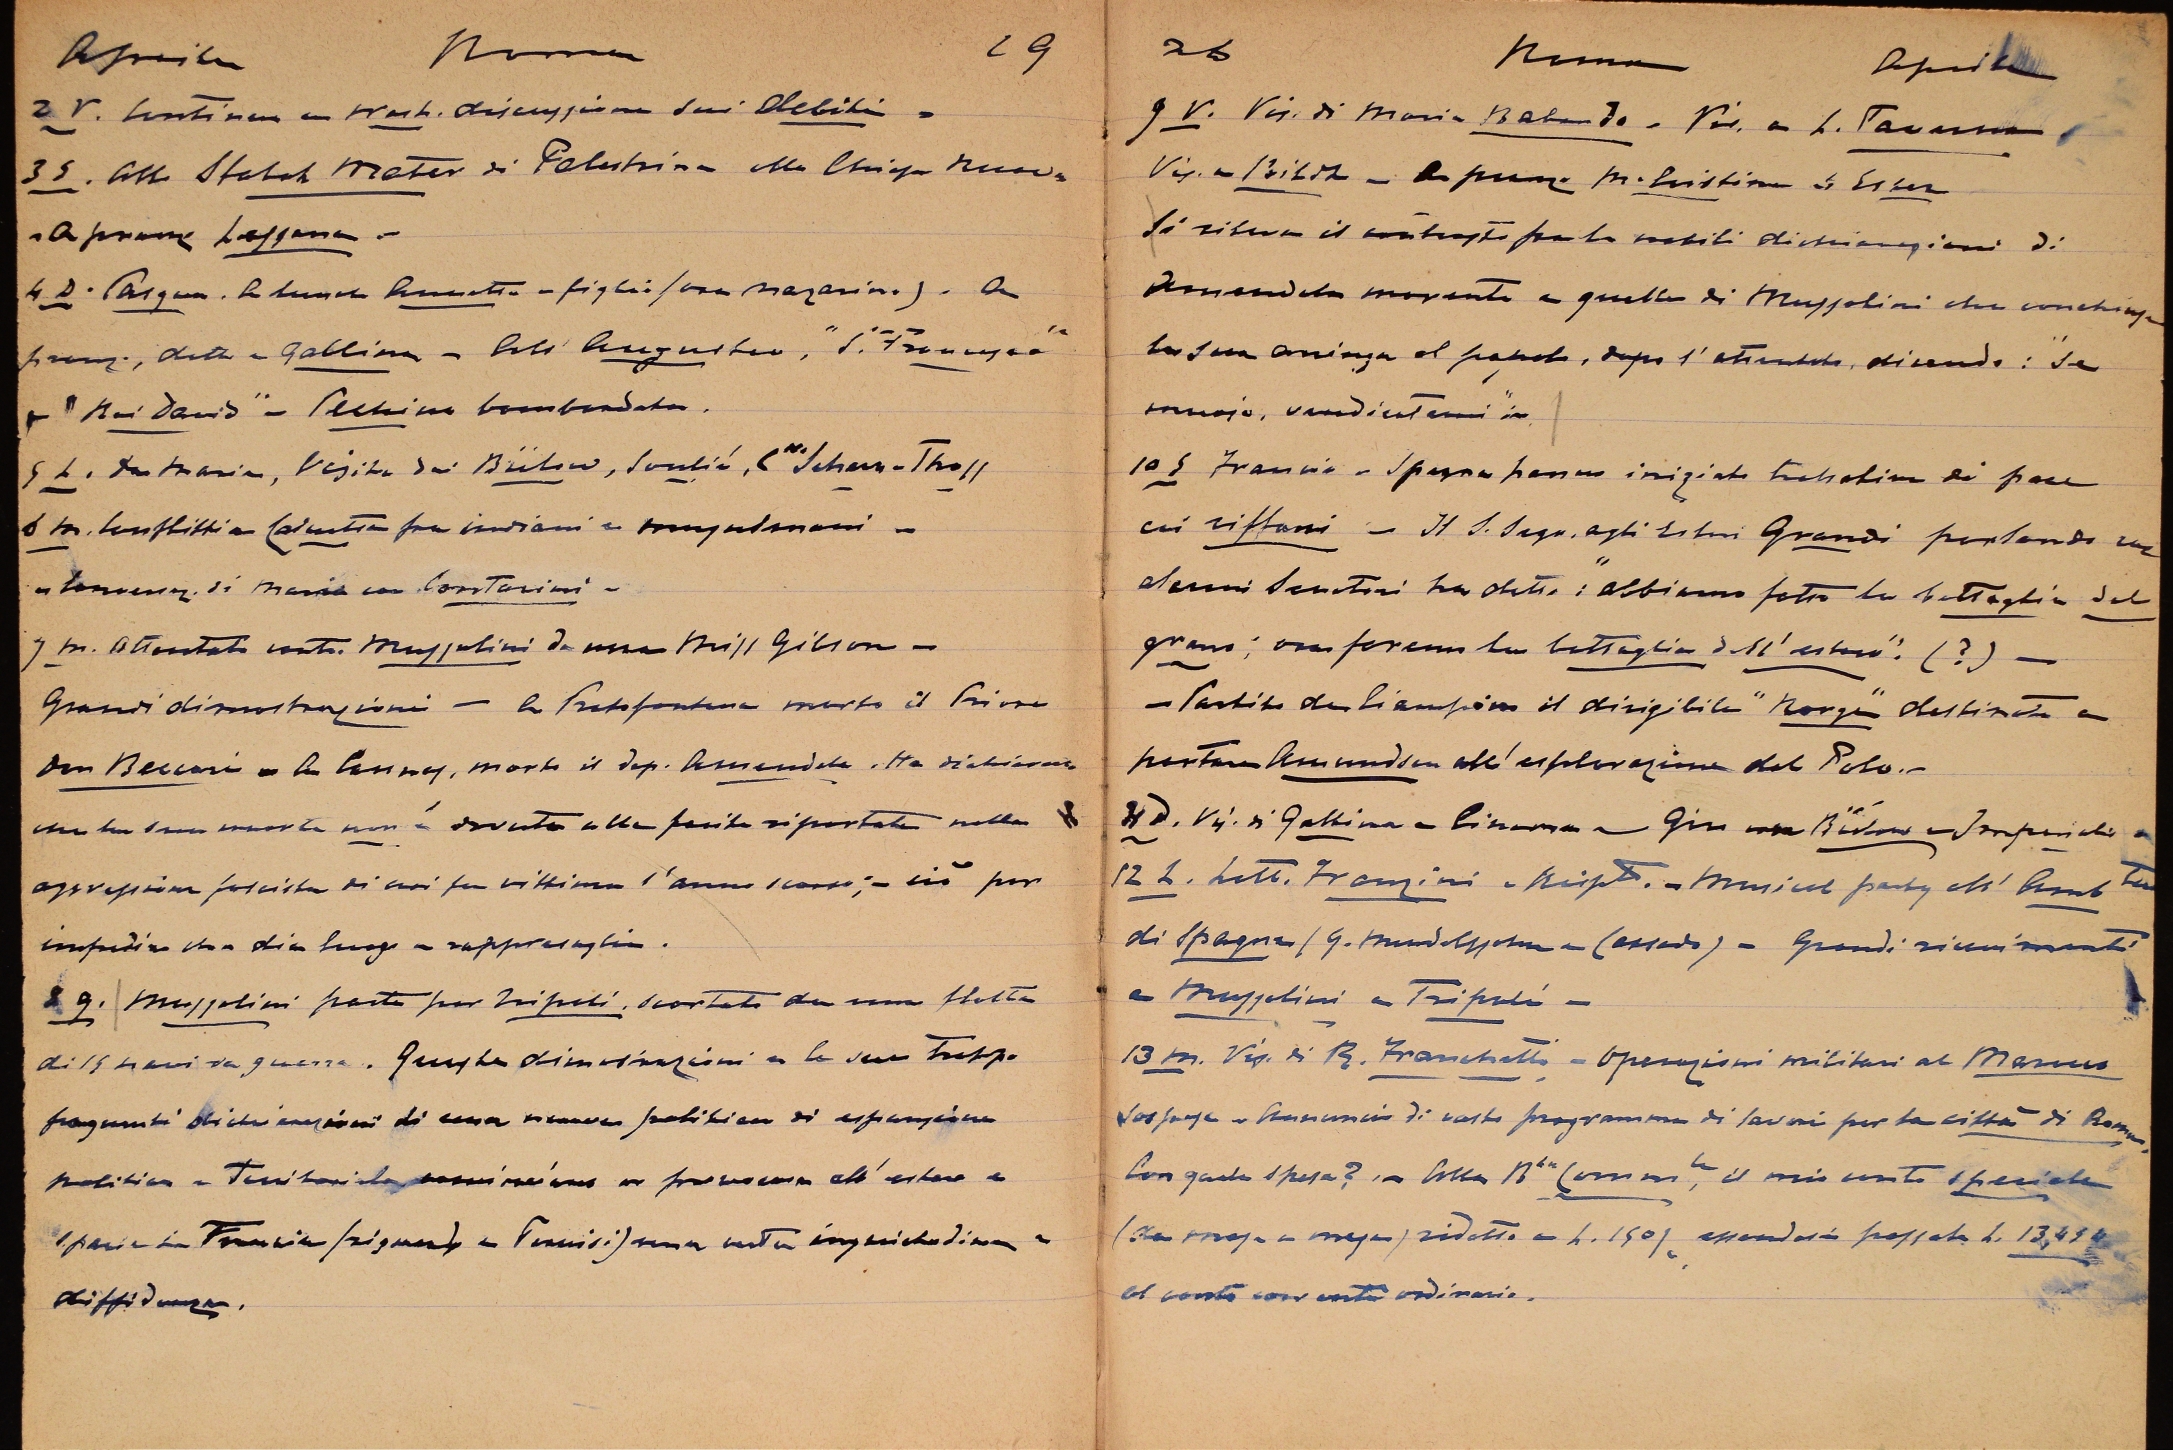 Aprile Roma 19
2 V. Continua a Wash. discussione sui debiti -
3 S. Allo Stabat Mater di Palestrina alla Chiesa Nuova
- A pranz. Lessona -
4 D. Pasqua. A lunch Annetta e figli (ora nazarino). A
pranz., detta e Gallina - All' Augusteo, "S. Francesco"
e "Roi David" - Pechino bombardata.
5 L. Da Maria, Visita dei Bülow, Soulié,
6 M. Conflitti a Calcutta fra indiani e musulmani -
- Conversaz. di Maria con Contarini -
7 M. Attentato contro Mussolini da una Miss Gibson -
Grandi dimostrazioni - A Grottaferrata morto il Priore
Don Beccari - A Cannes, morto il dep. Amendola. Ha dichiarato
che la sua morte non è dovuta alle ferite riportate nella
aggressione fascista di cui fu vittima l'anno scorso; - ciò per
impedire che dia luogo a rappresaglie.
8 G. Mussolini parte per Tripoli, scortato da una flotta
di 15 navi da guerra. Queste dimostrazioni e le sue troppo
frequenti dichiarazioni di una nuova politica di espansione
politica e territoriale cominciano a provocare all'estero e
specie in Francia (riguardo a Tunisi) una certa inquietudine e
diffidenza.
26 Roma Aprile
9 V. Vis. di Maria Balando - Vis. a L. Taverna
Vis. a - A pranz. M. Cristina e Ester
Si rileva il contrasto fra le nobili dichiarazioni di
Amendola morente e quelle di Mussolini che conchiuse
la sua arringa al popolo, dopo l'attentato, dicendo: "Se
muoio, vendicatemi" -
10 S Francia e Spagna hanno iniziato trattative di pace
coi riffani - Il S. Segr. agli Esteri Grandi parlando con
alcuni Senatori ha detto: "abbiamo fatto la battaglia del
grano; ora faremo la battaglia dell'estero". (?) -
- Partito da Ciampino il dirigibile "Norge" destinato a
portare Amundsen all'esplorazione del Polo. -
11 D. Vis. di Gallina - Cinema - Giro con Bülow -
12 L. Lett. Franzini e Risp. - Musical party all' Amb.ta
di Spagna (G. Mendelssohn e Cassado) - Grandi ricevimenti
a Mussolini a Tripoli -
13 M. Vis. di R. Franchetti - Operazioni militari al Marocco
sospese - Annuncio di vasto programma di lavori per la città di Roma.
Con quale spesa? - Alla B.ca Comm.le, il mio conto speciale
(da mese a mese) ridotto a L. 150/, essendosi passate L. 13,454
al conto corrente ordinario.